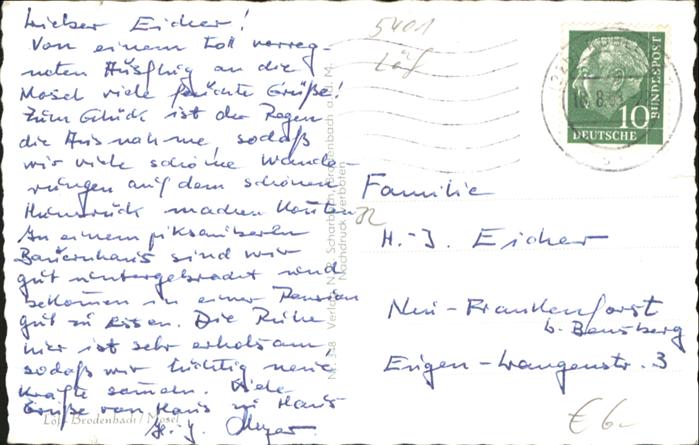 Lieber Eicher!
Von einem toll verreg-
neten Ausflug an die
Mosel viele feuchte Grüße!
Zum Glück ist der Regen
die Ausnahme, sodaß
wir viele schöne Wande-
rungen auf dem schönen
Hunsrück machen konnten
In einem piksauberen
Bauernhaus sind wir
gut untergebracht und
bekommen in einer Pension
gut zu Essen. Die Ruhe
hier ist sehr erholsam,
sodaß wir tüchtig neue
Kräfte sameln. Viele
Grüße von Haus zu Haus
H.-J.
Löf - Brodenbach / Mosel
Verlag N. & R. Scharbach, Brodenbach a. d. M.
Nachdruck verboten
5401
Löf
10
DEUTSCHE
BUNDESPOST
Familie
H.-J. Eicher
Neu-Frankenforst
b. Bensberg
Eugen-Langenstr. 3
€ 6.-